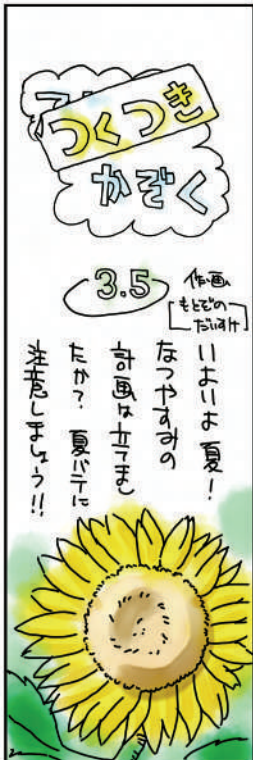 つくつき
かぞく
3.5
作・画
もとぞの
だいすけ
いよいよ夏！
なつやすみの
計画は立てまし
たか？夏バテに
注意しましょう!!